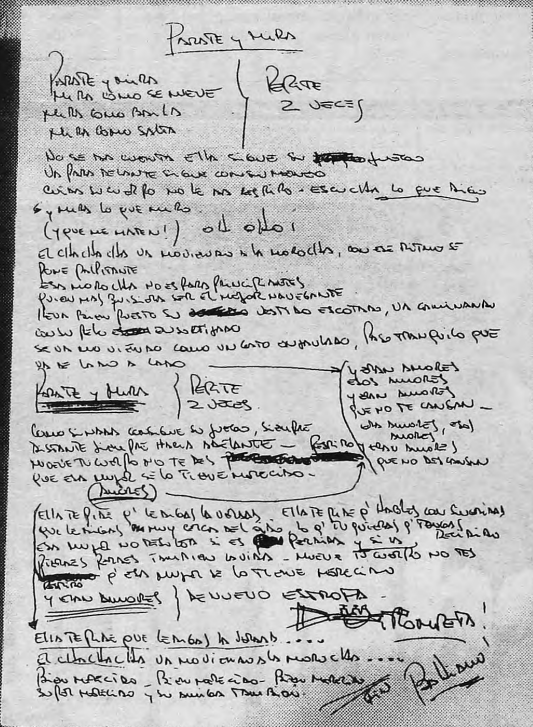 PARATE y MIRA
PARATE y MIRA
MIRA COMO SE MUEVE
MIRA COMO BAILA
MIRA COMO SALTA
REPITE
2 VECES
NO SE DA CUENTA ELLA SIGUE SU JUEGO
VA PARA DELANTE SIGUE CON SU MENEO
CUIDA SU CUERPO NO LE DA RESPIRO - ESCUCHA LO QUE DIGO
y MIRA LO QUE MIRO
(y QUE ME MATEN!) OH OHO!
EL CHACHACHA VA MOVIENDO A LA MOROCHA, CON ESE RITMO SE
PONE PALPITANTE
ESA MOROCHA NO ES PARA PRINCIPIANTES
QUIEN MAS QUISIERA SER EL MEJOR NAVEGANTE
LLEVA BIEN PUESTO SU VESTIDO ESCOTADO, VA CAMINANDO
CON SU PELO ENSORTIJADO
SE VA MOVIENDO COMO UN GATO ENJAULADO, PASO TRANQUILO QUE
VA DE LADO A LADO
PARATE y MIRA
REPITE
2 VECES
y ERAN AMORES
ESOS AMORES
y ERAN AMORES
QUE NO TE CANSAN -
ERAN AMORES, ESOS
AMORES,
y ERAN AMORES
QUE NO DESCANSAN
COMO SI NADA CONSIGUE SU JUEGO, SIEMPRE
DISTANTE SIEMPRE HACIA ADELANTE - RESPIRO
MUEVE TU CUERPO NO TE DES
QUE ESA MUJER SE LO TIENE MERECIDO -
(AMORES)
ELLA TE PIDE q' LE DIGAS LA VERDAD, ELLA TE PIDE q' HABLES CON SINCERIDAD
QUE LE DIGAS MUY CERCA DEL OIDO LO q' TU QUIERAS q' TENGAS DECIDIDO
ESA MUJER NO RESULTA SI ES PERDIDA y SI LA
PIERDES PIERDES TAMBIEN LA VIDA - MUEVE TU CUERPO NO TES
RESPIRO q' ESA MUJER SE LO TIENE MERECIDO
y ERAN AMORES
DE NUEVO ESTROFA -
TROMPETA!
ELLA TE PIDE QUE LE DIGAS LA VERDAD ....
EL CHACHACHA VA MOVIENDO A LA MOROCHA ....
BIEN MERECIDO - BIEN MERECIDO - BIEN MERECIDO
SUPER MERECIDO - y SU AMIGA TAMBIEN.
FIN